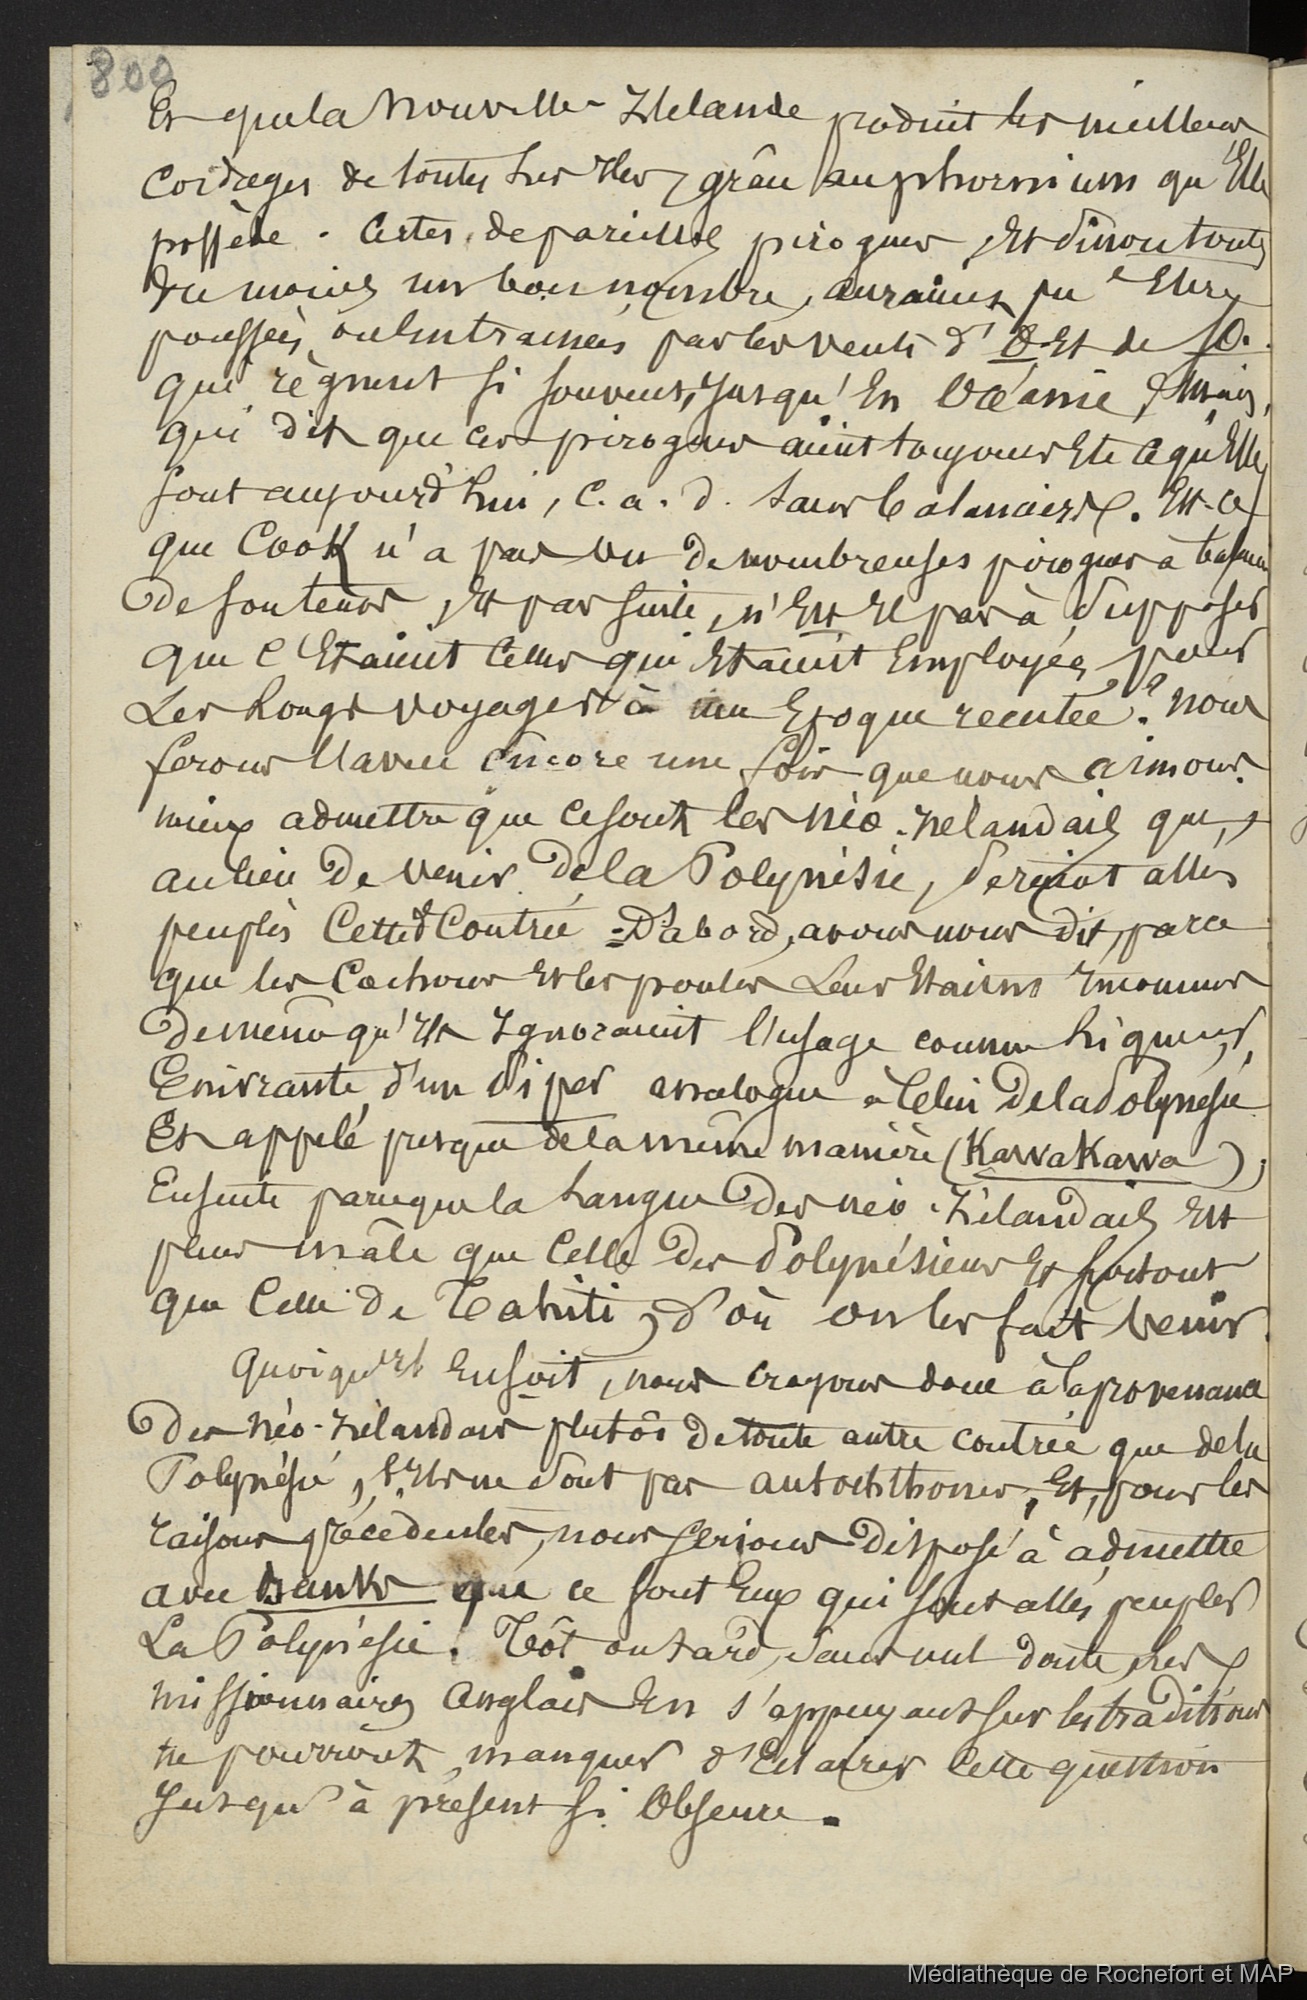 800
Et que la Nouvelle-Zélande produit les meilleurs
Cordages de toutes ces Iles, grâce au phormium qu'Elle
possède. Certes, de pareilles pirogues, Et sinon toutes
du moins un bon nombre, auraient pu Etre
poussées, ou Entrainées par les vents d'O. Et de SO.
qui règnent si souvent, Jusqu'En Océanie, Mais,
qui dit que ces pirogues aient toujours Eté ce qu'Elles
sont aujourd'hui, C. a. d. sans balanciers. Est-ce
que Cook n'a pas vu de nombreuses pirogues à
de souteneur, Et par suite, n'Est Il pas à supposer
que C'Etaient Celles qui Etaient Employées pour
Les Longs voyages à une Epoque reculée? Nous
ferons l'aveu Encore une fois que nous aimons
mieux admettre que Ce sont les Néo-Zélandais qui,
au lieu De venir De la Polynésie, seraient allés
peupler Cette Contrée = D'abord, avons nous dit, parce
que les Cochons Et les poules Leur Etaient Inconnus
De même qu'Ils Ignoraient l'usage comme liqueur
Enivrante d'un Piper analogue à Celui De la Polynésie
Et appelé presque de la même manière (KawaKawa);
Ensuite parceque la Langue Des Néo-Zélandais Est
plus mâle que Celle Des Polynésiens Et surtout
que Celle de Tahiti, d'où on les fait venir.
Quoiqu'Il En soit, nous croyons donc à la provenance
Des Néo-Zélandais plutôt de toute autre contrée que de la
Polynésie, s'Ils ne sont pas autochthones, Et, pour les
raisons précédentes, nous serions Disposé à admettre
avec Banks que ce sont Eux qui sont allés peupler
La Polynésie. Tôt ou tard, sans nul doute, les
missionnaires Anglais En s'appuyant sur les traditions
ne pourront manquer d'Eclairer Cette question
Jusqu'à présent si Obscure.
Médiathèque de Rochefort et MAP